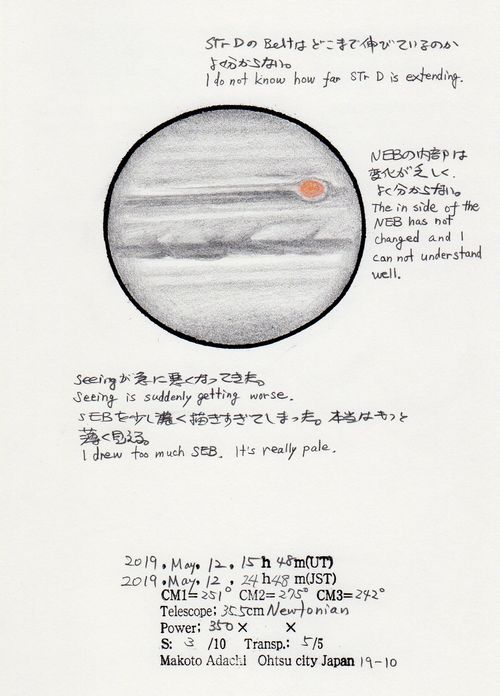 STr DのBeltはどこまで伸びているのか
よく分からない。
I do not know how far STr D is extending.
NEBの内部は
変化が乏しく、
よく分からない。
The in side of the
NEB has not
changed and I
can not understand
well.
Seeingが急に悪くなってきた。
Seeing is suddenly getting worse.
SEBを少し濃く描きすぎてしまった。本当はもっと
薄く見える。
I drew too much SEB. It's really pale.
2019. May. 12. 15h 48m(UT)
2019. May. 12. 24h48 m(JST)
CM1=251° CM2=275° CM3=242°
Telescope: 35.5cm Newtonian
Power: 350× ×
S: 3 /10 Transp.: 5/5
Makoto Adachi Ohtsu city Japan 19-10